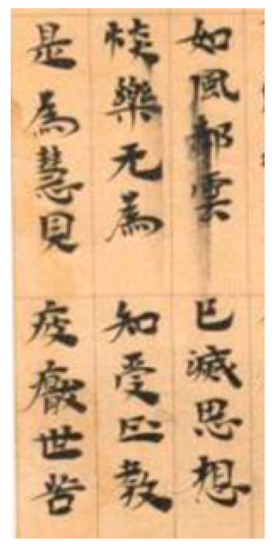 如風却雲 已滅思想
惔樂无為 知受正教
是為慧見 疲厭世苦